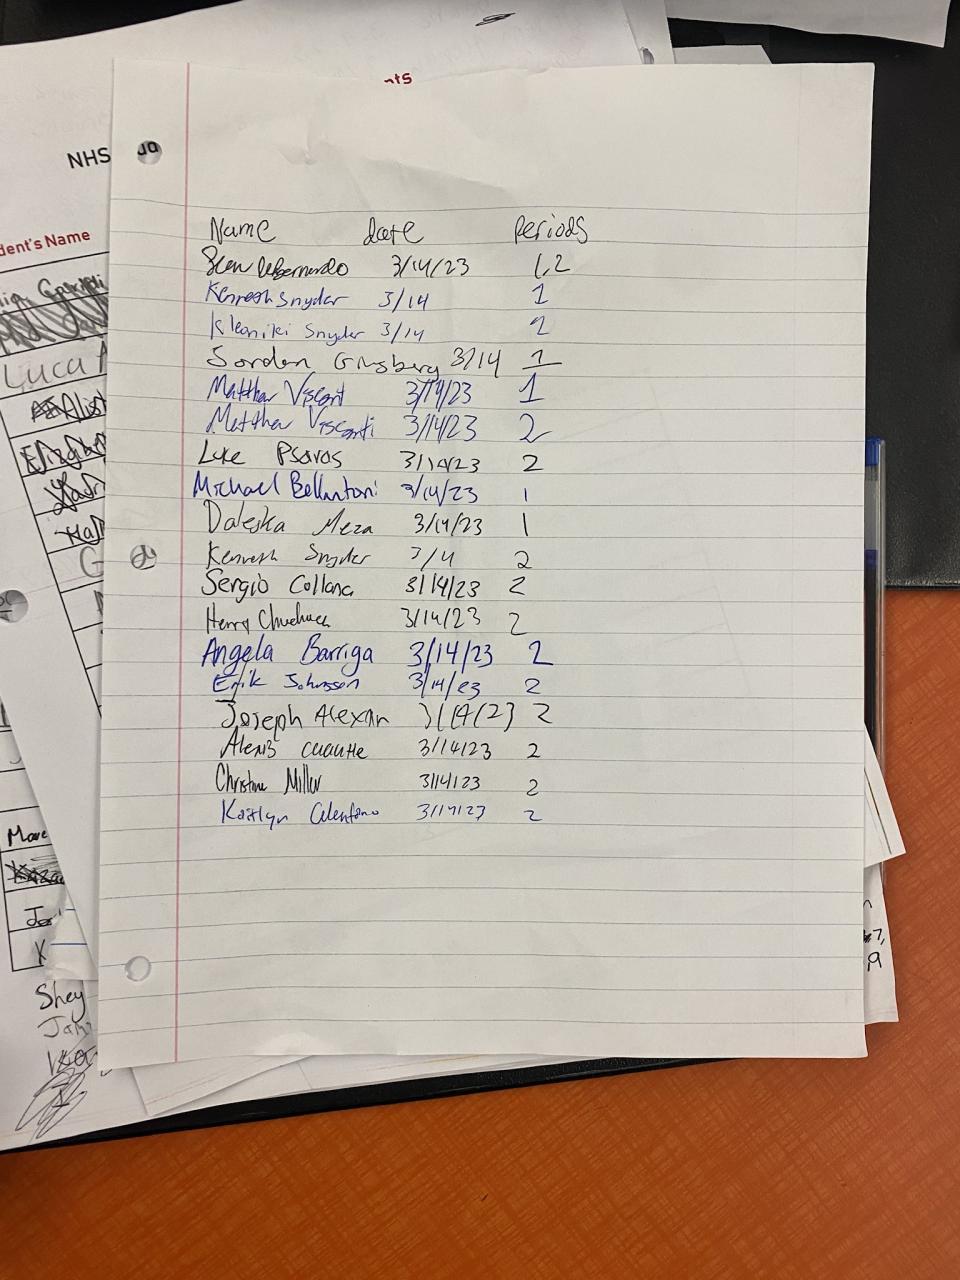 nts
NHS
dent's Name
Luca
Name date Periods
Sean DeBernardo 3/14/23 1,2
Kenneth Snyder 3/14 1
Kleoniki Snyder 3/14 2
Jordan Ginsberg 3/14 1
Matthew Viscont 3/14/23 1
Matthew Visconti 3/14/23 2
Luke Psaros 3/14/23 2
Michael Bellantoni 3/14/23 1
Daleska Meza 3/14/23 1
Kenneth Snyder 3/14 2
Sergio Collana 3/14/23 2
Henry 3/14/23 2
Angela Barriga 3/14/23 2
Erik Johansson 3/14/23 2
Joseph Alexan 3/14/23 2
Alexis cuautle 3/14/23 2
Christine Miller 3/14/23 2
Kaitlyn Celentano 3/14/23 2
Shey